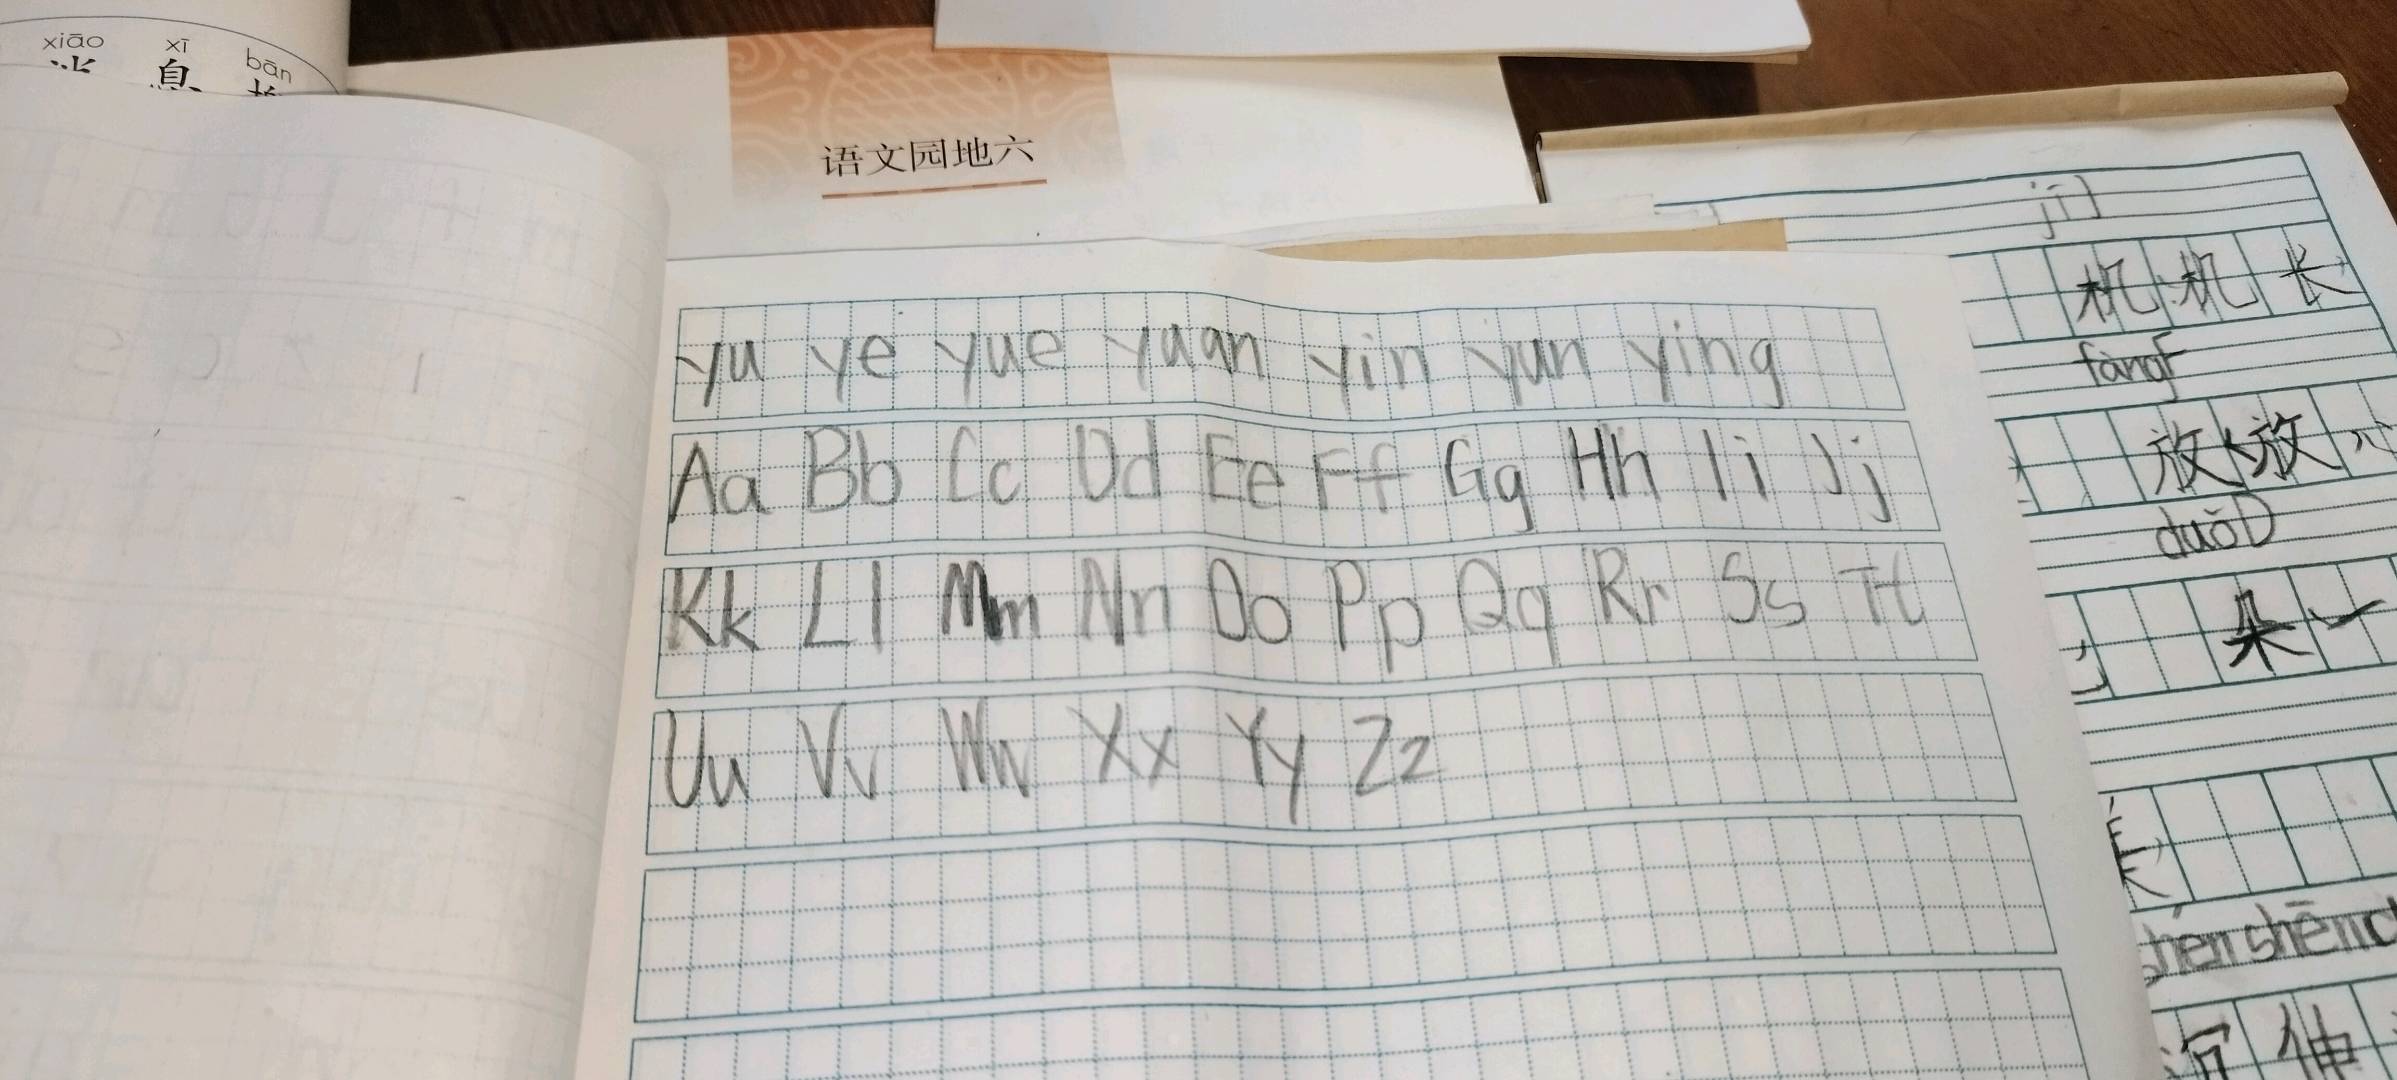 xiāo xī bān
息
语文园地六
yu ye yue yuan yin yun ying
Aa Bb Cc Dd Ee Ff Gg Hh Ii Jj
Kk Ll Mm Nn Oo Pp Qq Rr Ss Tt
Uu Vv Ww Xx Yy Zz
jī J
机 机 长
fàng F
放 放
duǒ D
朵 一
shēn
伸